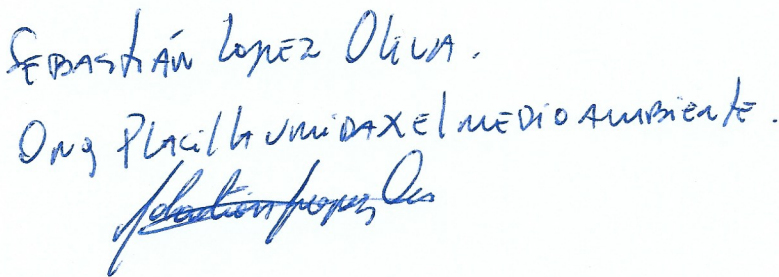 Sebastián Lopez Oliva.
Ong Placilla unida x el medio ambiente.
Sebastian Lopez